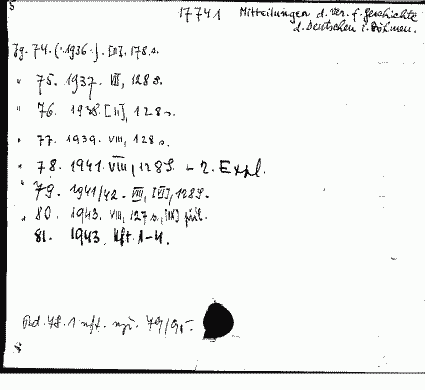 17741 Mitteilungen d. Ver. f. Geschichte
d. Deutschen i. Böhmen.
Jg. 74. (1936.) [II]. 178 s.
" 75. 1937. VII, 128 s.
" 76. 1938. [II], 128 s.
" 77. 1939. VIII, 128 s.
" 78. 1941. VIII, 128 S. - 2. Expl.
" 79. 1941/42. VIII, [VI], 128 S.
" 80. 1943. VIII, 127 s., [IX] příl.
81. 1943. Hft. 1-4.
78. 1 79/95